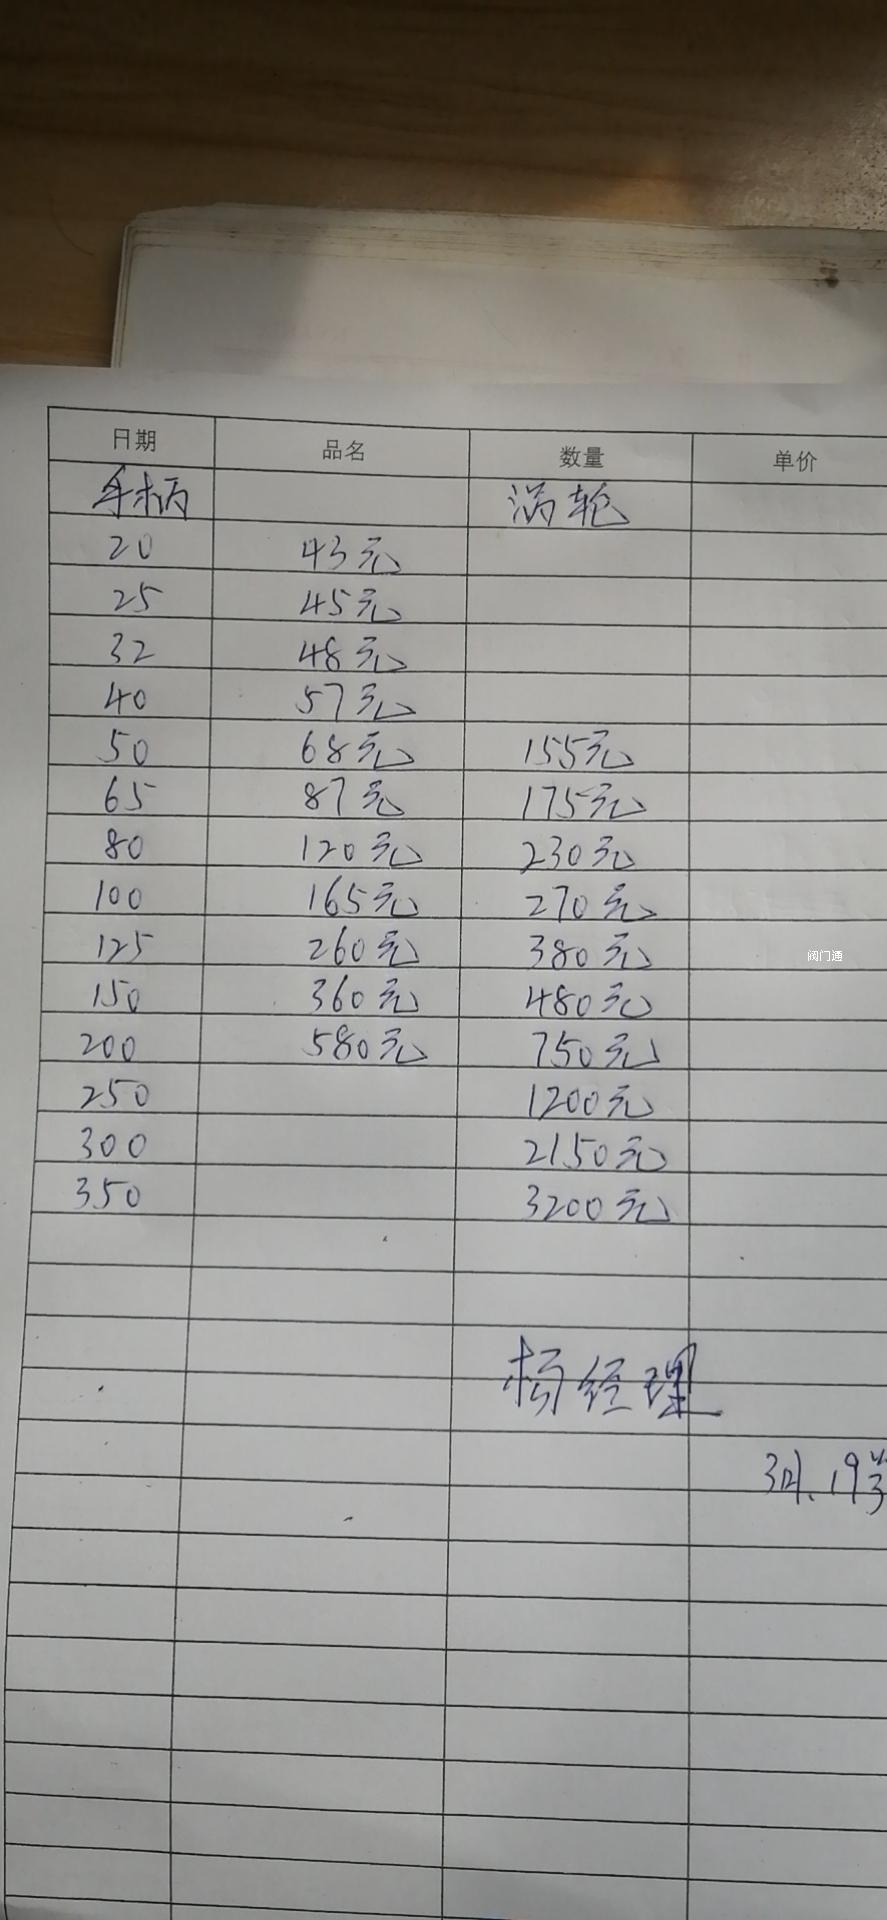 日期 品名 数量 单价
手柄 涡轮
20 43元
25 45元
32 48元
40 57元
50 68元 155元
65 87元 175元
80 120元 230元
100 165元 270元
125 260元 380元
阀门通
150 360元 480元
200 580元 750元
250 1200元
300 2150元
350 3200元
杨经理
3月.19号